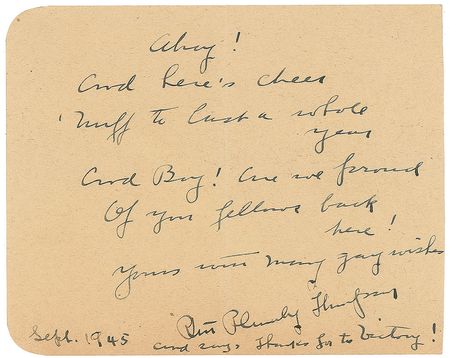 Ahoy!
And here's cheer
'Nuff to last a whole
year
And Boy! Are we proud
Of you fellows back
here!
Yours with many gay wishes
Ruth Plumly Thompson
Sept. 1945 and says thanks for the Victory!